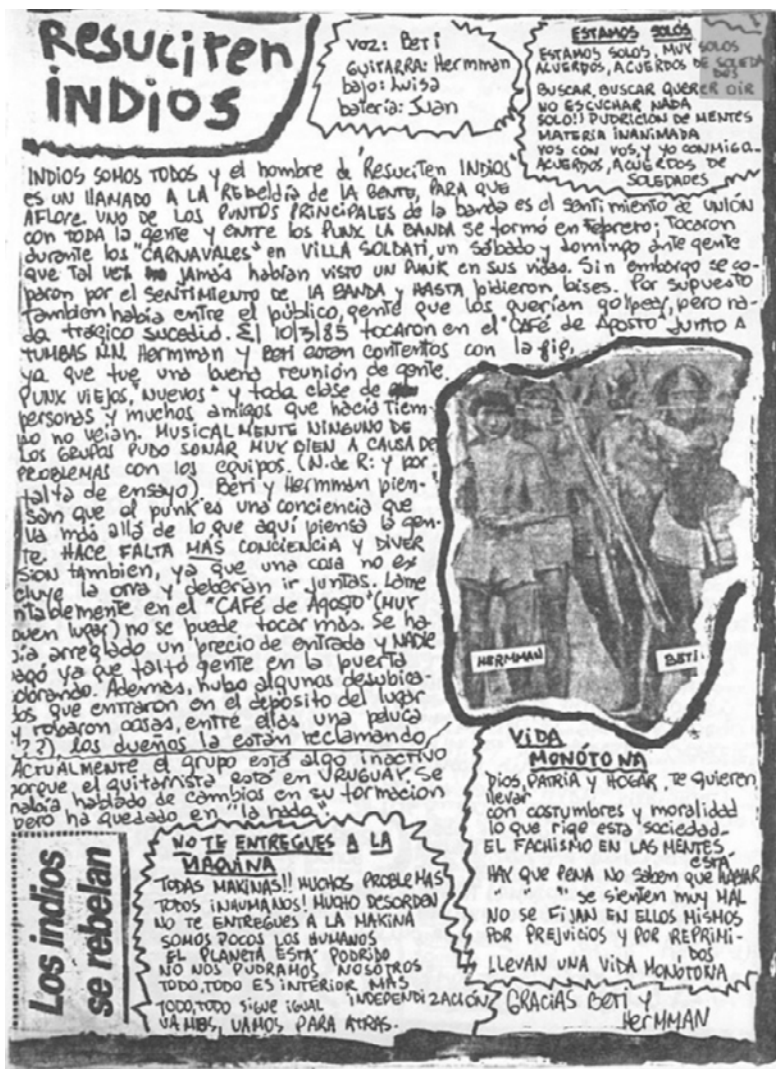 Resuciten
INDIOS
voz: Beti
GUITARRA: Hermman
bajo: Luisa
batería: Juan
ESTAMOS SOLOS
ESTAMOS SOLOS, MUY SOLOS
ACUERDOS, ACUERDOS DE SOLEDA
DES
BUSCAR, BUSCAR QUERER OIR
NO ESCUCHAR NADA
SOLO!! PUDRICION DE MENTES
MATERIA INANIMADA
VOS CON VOS, Y YO CONMIGO-
ACUERDOS, ACUERDOS DE
SOLEDADES
INDIOS SOMOS TODOS y el hombre de "Resuciten INDIOS"
es UN llAMADO A LA Rebeldía de LA GENTE, PARA QUE
AFLORE UNO DE LOS PUNTOS PRINCIPALES de la banda es el sentimiento de UNIÓN
con TODA la gente y entre los PUNX. LA BANDA se formó en febrero; Tocaron
durante los "CARNAVALES" en VILLA SOLDATI, un sábado y domingo ante gente
que Tal vez jamás habían visto UN PUNK en sus vidas. Sin embargo se co-
paron por el SENTIMIENTO DE LA BANDA y HASTA pidieron bises. Por supuesto
tambien había entre el público, gente que los querían golpear, pero na-
da trágico sucedió. El 10/3/85 tocaron en el "CAFÉ de Agosto" junto A
TUMBAS N.N. Hermman y Beti estan contentos con la gig,
ya que fue una buena reunión de gente.
PUNX viejos, "nuevos" y toda clase de
personas y muchos amigos que hacía tiem-
po no veían. MUSICALMENTE NINGUNO DE
LOS GRUPOS PUDO SONAR MUY BIEN A CAUSA DE
PROBLEMAS con los equipos. (N. de R: y por
falta de ensayo). Beti y Hermman pien-
san que el punk es una conciencia que
va más allá de lo que aquí piensa la gen-
te. HACE FALTA MÁS CONCIENCIA Y DIVER
SION tambien, ya que una cosa no ex
cluye la otra y deberían ir juntas. Lame
ntablemente en el "CAFÉ de Agosto" (MUY
buen lugar) no se puede tocar más. Se ha-
bía arreglado un precio de entrada y NADIE
pagó ya que faltó gente en la puerta
cobrando. Además, hubo algunos desubica-
dos que entraron en el depósito del lugar
y robaron cosas, entre ellas una peluca
(??), los dueños la están reclamando
ACTUALMENTE el grupo está algo inactivo
porque el guitarrista está en URUGUAY. Se
había hablado de cambios en su formacion
pero ha quedado en "la nada"
HERMMAN
BETI
Los indios
se rebelan
NO TE ENTREGUES A LA
MAQUINA
TODAS MAKINAS!! MUCHOS PROBLEMAS
TODOS INHUMANOS! MUCHO DESORDEN
NO TE ENTREGUES A LA MAKINA
SOMOS POCOS LOS HUMANOS
EL PLANETA ESTÁ PODRIDO
NO NOS PUDRAMOS NOSOTROS
TODO, TODO ES INTERIOR MAS
INDEPENDIZACIÓN
TODO, TODO SIGUE IGUAL
VAMOS, VAMOS PARA ATRAS.
VIDA
MONÓTONA
Dios, PATRIA Y HOGAR, te quieren
llevar
con costumbres y moralidad
lo que rige esta sociedad-
EL FACHISMO EN LAS MENTES
ESTA
HAY QUE PENA NO saben que HABLAR
" " " se sienten muy MAL
NO SE FIJAN EN ELLOS MISMOS
POR PREJUICIOS Y POR REPRIMI-
DOS
LLEVAN UNA VIDA MONÓTONA
GRACIAS BETI Y
HerMMAN